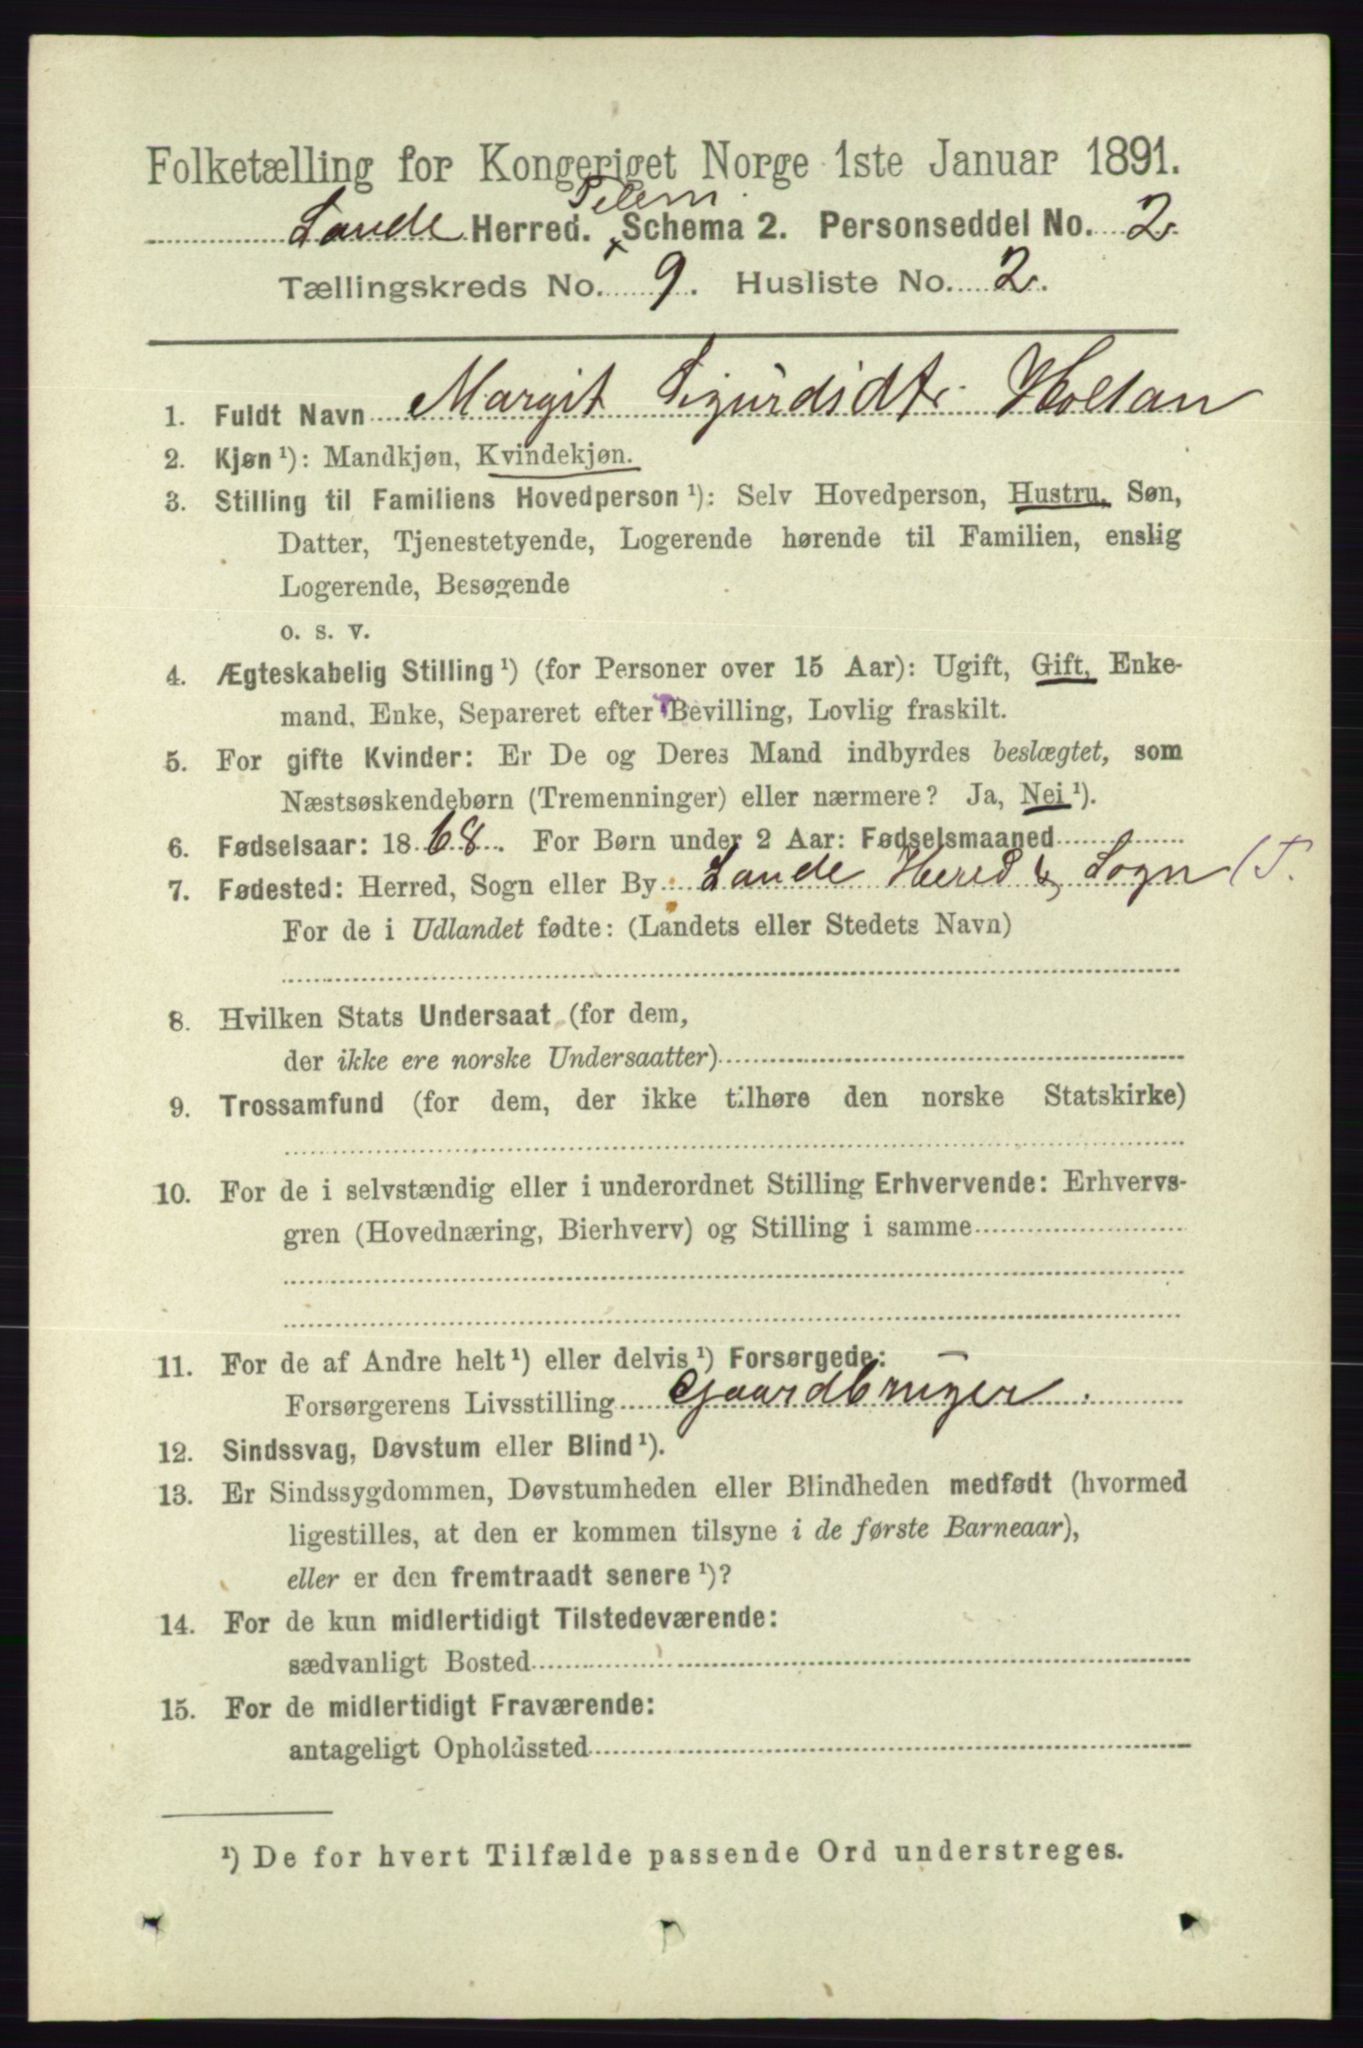 Folketælling for Kongeriget Norge 1ste Januar 1891.
Telem.
Saude Herred. Schema 2. Personseddel No. 2.
Tællingskreds No. 9. Husliste No. 2.
1. Fuldt Navn Margit Sigurdsdt. Holtan
2. Kjøn ¹): Mandkjøn, Kvindekjøn.
3. Stilling til Familiens Hovedperson ¹): Selv Hovedperson, Hustru, Søn,
Datter, Tjenestetyende, Logerende hørende til Familien, enslig
Logerende, Besøgende
o. s. v.
4. Ægteskabelig Stilling ¹) (for Personer over 15 Aar): Ugift, Gift, Enke-
mand, Enke, Separeret efter Bevilling, Lovlig fraskilt.
5. For gifte Kvinder: Er De og Deres Mand indbyrdes beslægtet, som
Næstsøskendebørn (Tremenninger) eller nærmere? Ja, Nei ¹).
6. Fødselsaar: 1868. For Børn under 2 Aar: Fødselsmaaned
7. Fødested: Herred, Sogn eller By Saude Hered & Sogn (T.
For de i Udlandet fødte: (Landets eller Stedets Navn)
8. Hvilken Stats Undersaat (for dem,
der ikke ere norske Undersaatter)
9. Trossamfund (for dem, der ikke tilhøre den norske Statskirke)
10. For de i selvstændig eller i underordnet Stilling Erhvervende: Erhvervs-
gren (Hovednæring, Bierhverv) og Stilling i samme
11. For de af Andre helt ¹) eller delvis ¹) Forsørgede:
Forsørgerens Livsstilling Gaardbruger.
12. Sindssvag, Døvstum eller Blind ¹).
13. Er Sindssygdommen, Døvstumheden eller Blindheden medfødt (hvormed
ligestilles, at den er kommen tilsyne i de første Barneaar),
eller er den fremtraadt senere ¹)?
14. For de kun midlertidigt Tilstedeværende:
sædvanligt Bosted
15. For de midlertidigt Fraværende:
antageligt Opholdssted
¹) De for hvert Tilfælde passende Ord understreges.